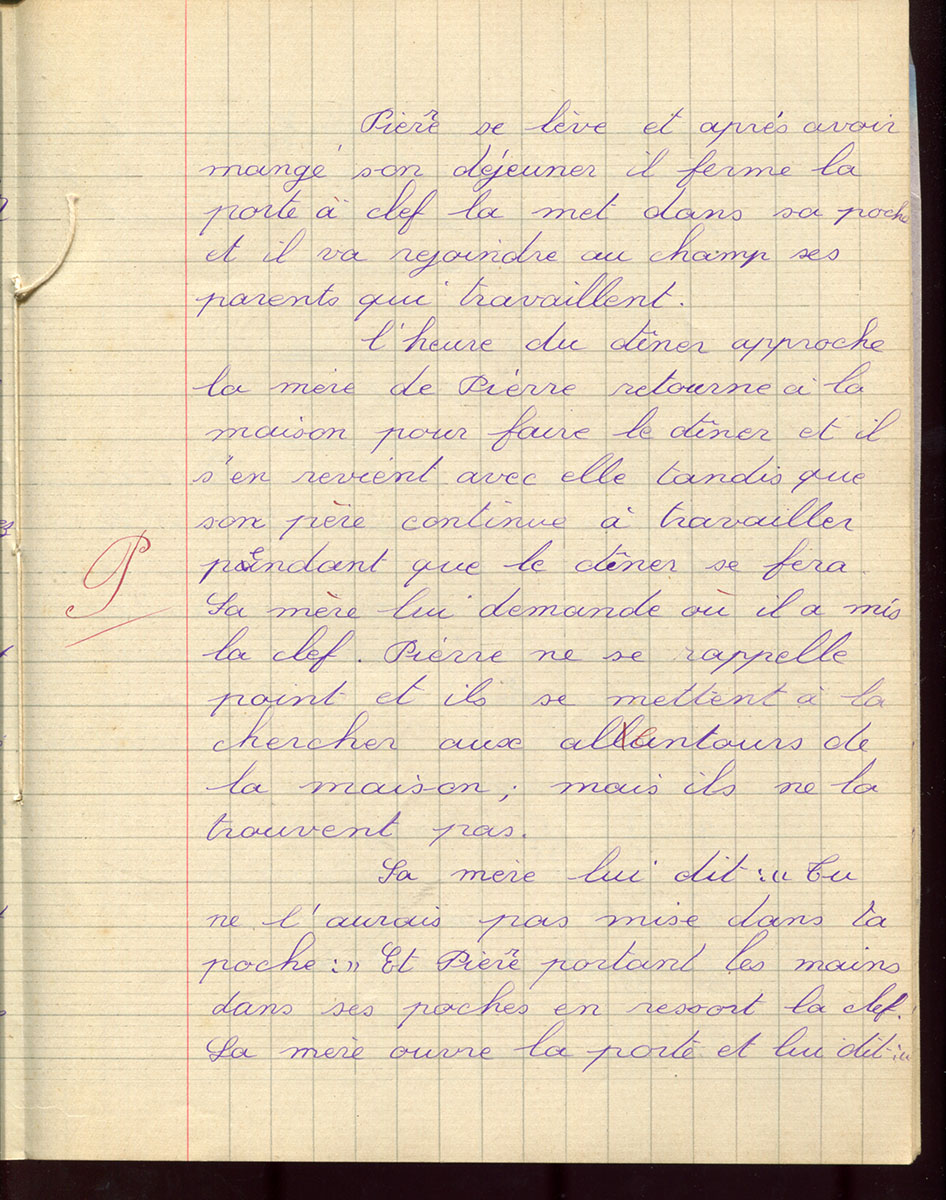 Pierre se lève et aprés avoir
mangé son déjeuner il ferme la
porte à clef la met dans sa poche
et il va rejoindre au champ ses
parents qui travaillent.
l'heure du dîner approche
la mère de Pierre retourne à la
maison pour faire le dîner et il
s'en revient avec elle tandis que
son père continue à travailler
P
pendant que le dîner se fera.
Sa mère lui demande où il a mis
la clef. Pierre ne se rappelle
point et ils se mettent à la
chercher aux allentours de
la maison ; mais ils ne la
trouvent pas.
Sa mère lui dit : " Tu
ne l'aurais pas mise dans ta
poche : " Et Pierre portant les mains
dans ses poches en ressort la clef.
Sa mère ouvre la porte et lui dit : "